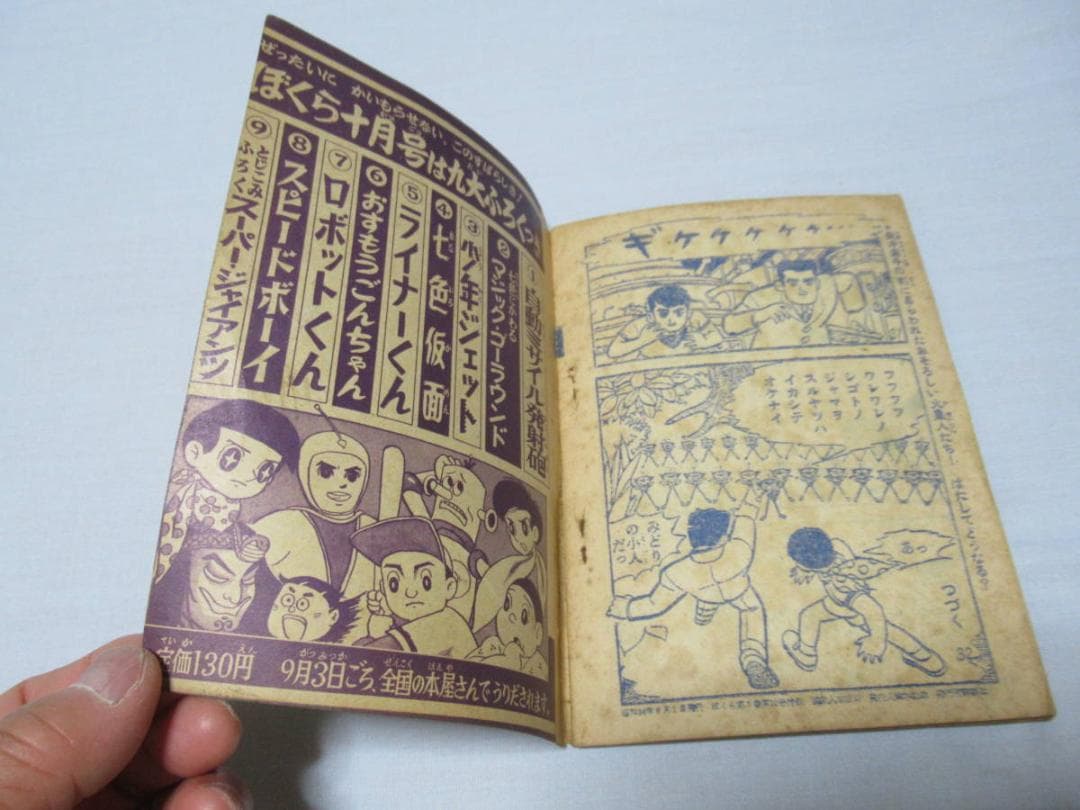 ぜったいに かいもらせない、このすばらしさ！
ぼくら十月号は九大ふろくつき
①自動ミサイル発射砲
②マジック・ゴーラウンド
③少年ジェット
④七色仮面
⑤ライナーくん
⑥おすもうごんちゃん
⑦ロボットくん
⑧スピードボーイ
⑨とじこみふろくスーパージャイアンツ
定価130円 9月3日ごろ、全国の本屋さんでうりだされます。
ギケケケケケ…
フフフフ
ワレワレノ
シゴトノ
ジャマヲ
スルヤツハ
イカシテ
オケナイ
みどり
の小人
だっ
あっ
つづく
32